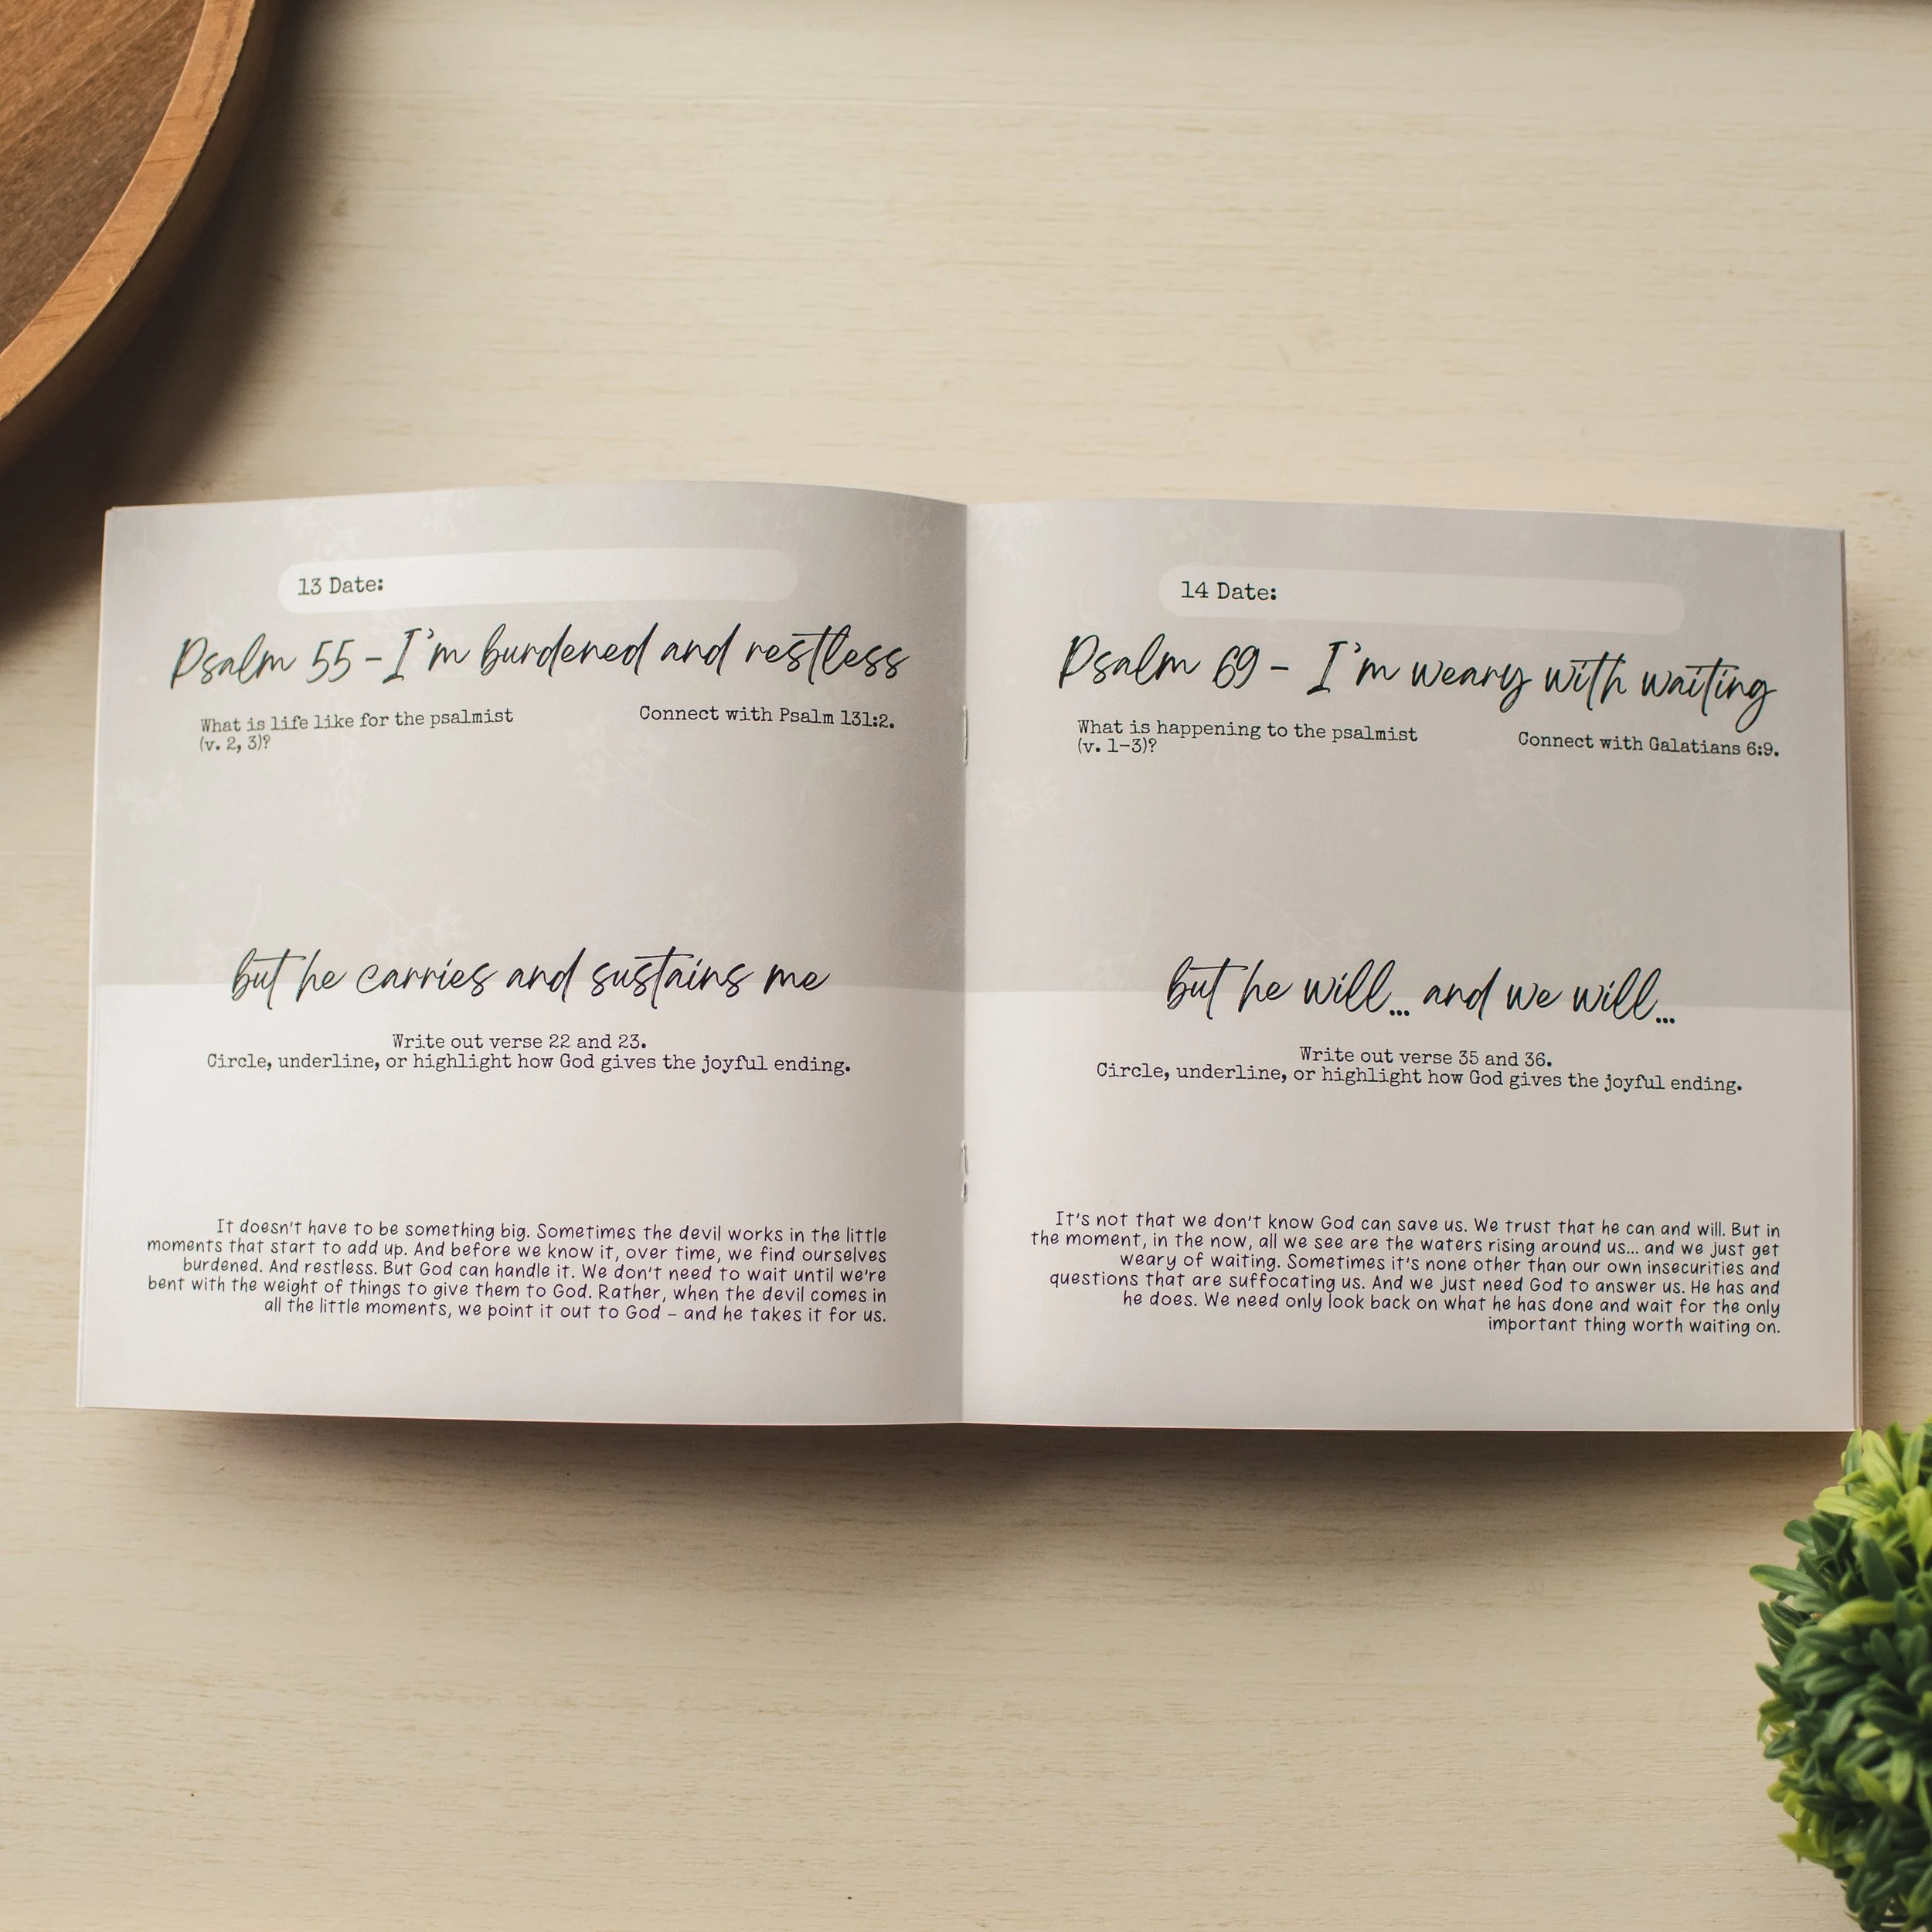 13 Date:
Psalm 55 - I'm burdened and restless
What is life like for the psalmist
(v. 2, 3)?
Connect with Psalm 131:2.
but he carries and sustains me
Write out verse 22 and 23.
Circle, underline, or highlight how God gives the joyful ending.
It doesn't have to be something big. Sometimes the devil works in the little
moments that start to add up. And before we know it, over time, we find ourselves
burdened. And restless. But God can handle it. We don't need to wait until we're
bent with the weight of things to give them to God. Rather, when the devil comes in
all the little moments, we point it out to God – and he takes it for us.
14 Date:
Psalm 69 - I'm weary with waiting
What is happening to the psalmist
(v. 1-3)?
Connect with Galatians 6:9.
but he will... and we will...
Write out verse 35 and 36.
Circle, underline, or highlight how God gives the joyful ending.
It's not that we don't know God can save us. We trust that he can and will. But in
the moment, in the now, all we see are the waters rising around us... and we just get
weary of waiting. Sometimes it's none other than our own insecurities and
questions that are suffocating us. And we just need God to answer us. He has and
he does. We need only look back on what he has done and wait for the only
important thing worth waiting on.